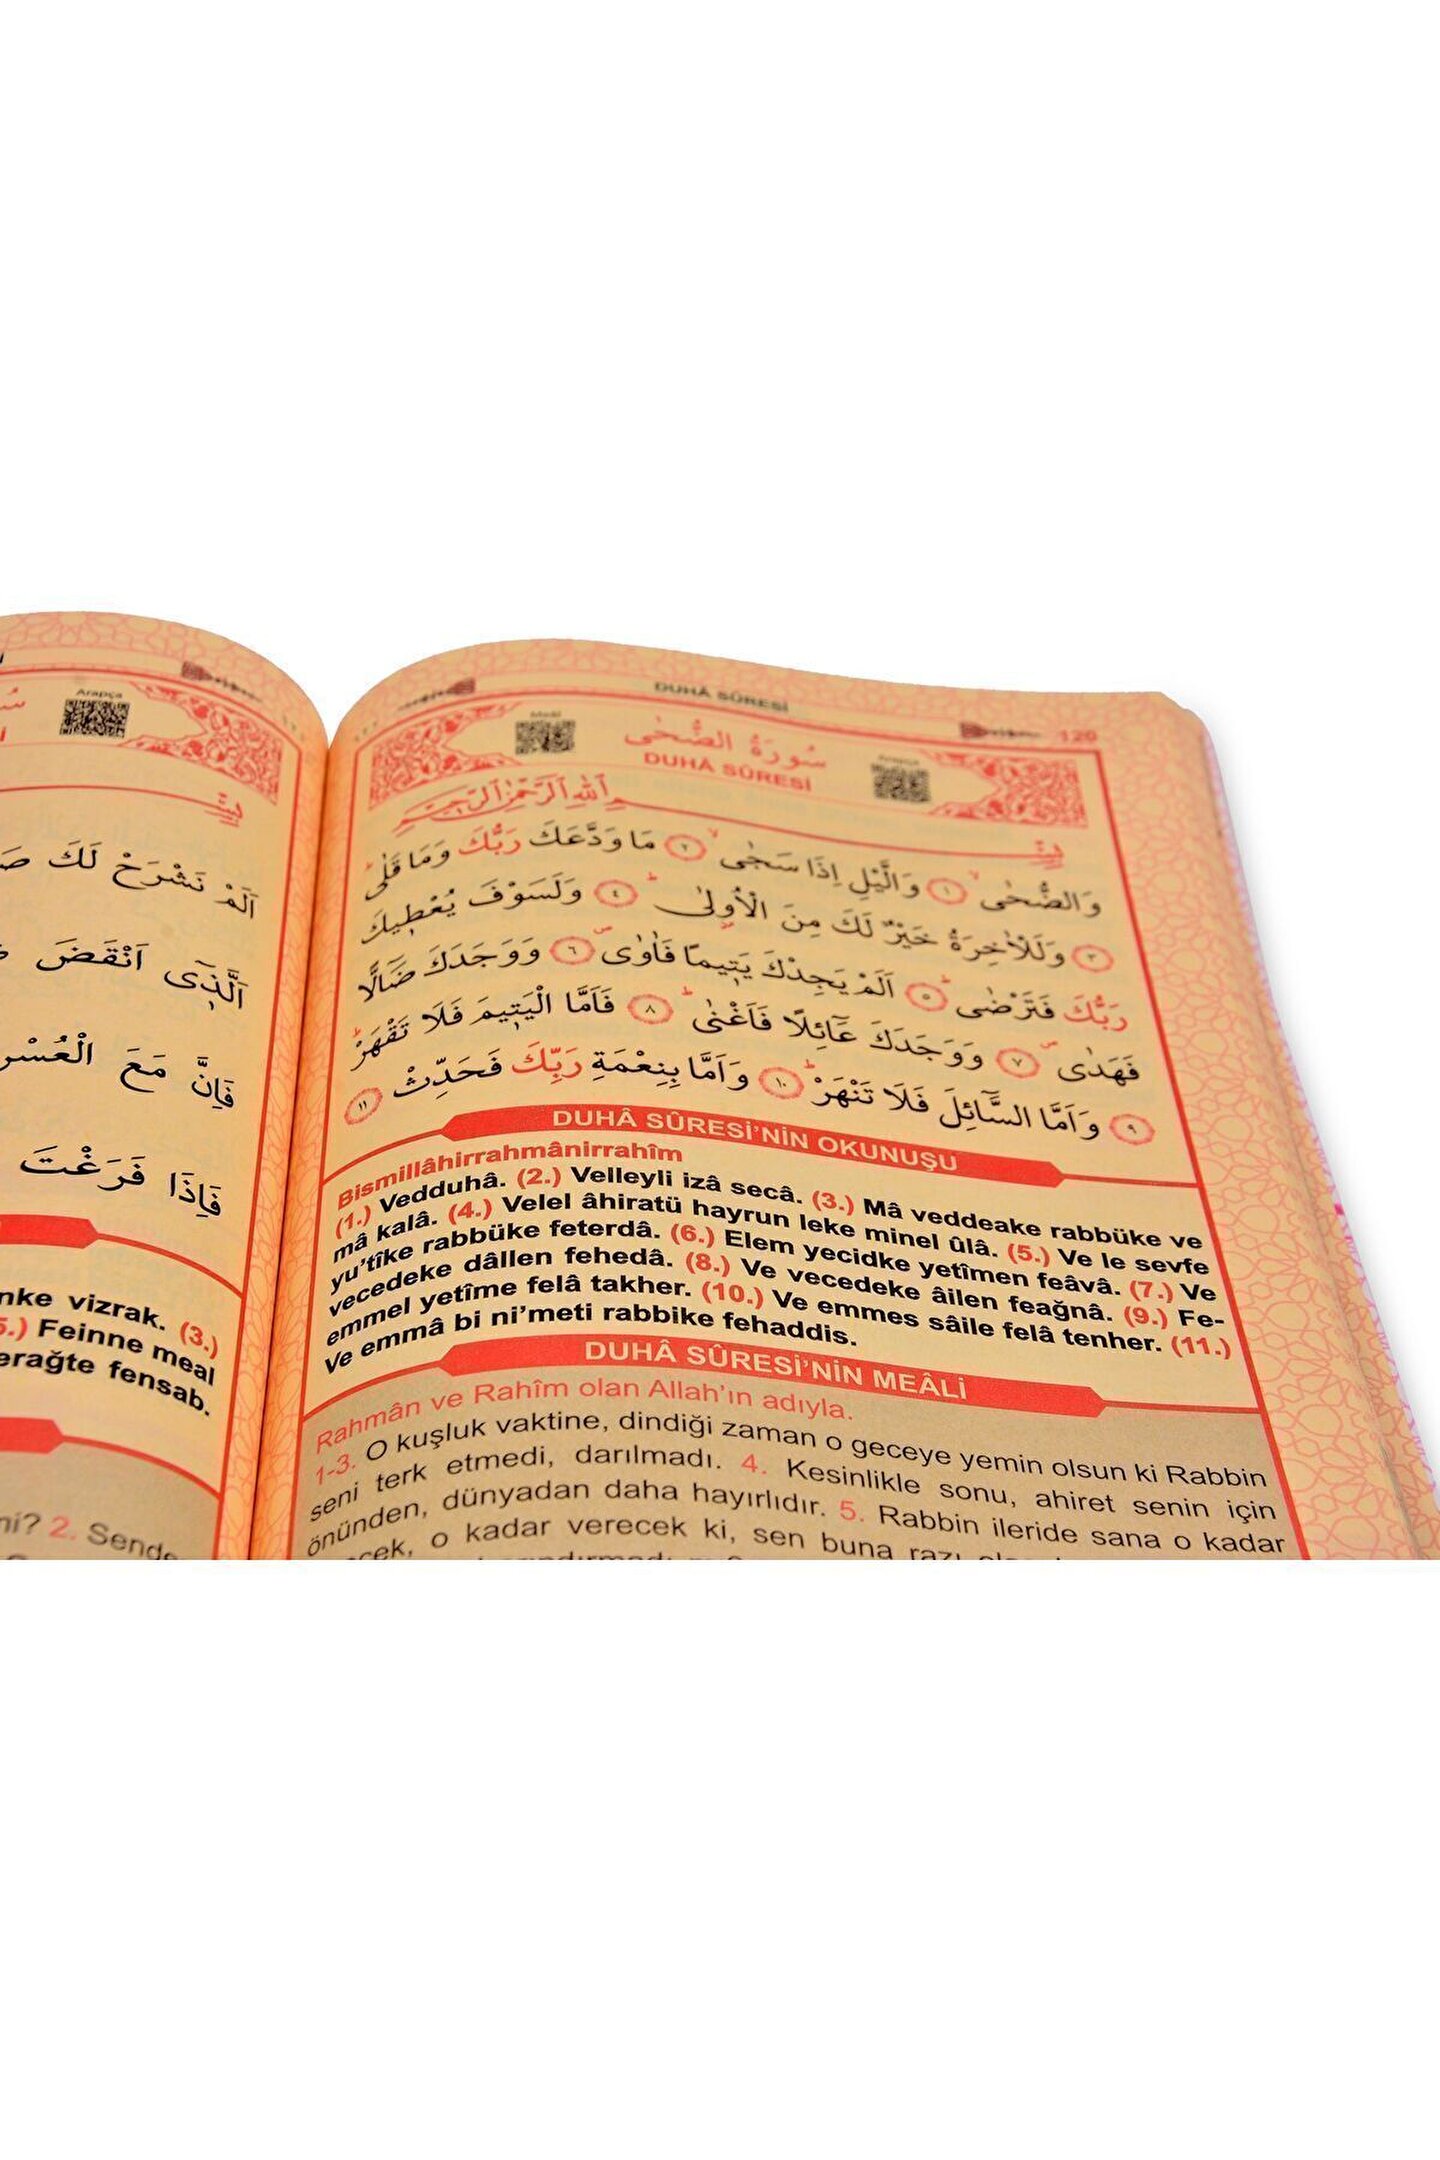 DUHÂ SÛRESİ
120
Meâl
سُورَةُ الضُّحٰى
DUHÂ SÛRESİ
Arapça
بِسْمِ اللّٰهِ الرَّحْمٰنِ الرَّحِيمِ
وَالضُّحٰىۙ ﴿١﴾ وَالَّيْلِ اِذَا سَجٰىۙ ﴿٢﴾ مَا وَدَّعَكَ رَبُّكَ وَمَا قَلٰىۜ
﴿٣﴾ وَلَلْاٰخِرَةُ خَيْرٌ لَكَ مِنَ الْاُو۫لٰىۜ ﴿٤﴾ وَلَسَوْفَ يُعْط۪يكَ
رَبُّكَ فَتَرْضٰىۜ ﴿٥﴾ اَلَمْ يَجِدْكَ يَت۪يمًا فَاٰوٰىۖ ﴿٦﴾ وَوَجَدَكَ ضَٓالًّا
فَهَدٰىۖ ﴿٧﴾ وَوَجَدَكَ عَٓائِلًا فَاَغْنٰىۜ ﴿٨﴾ فَاَمَّا الْيَت۪يمَ فَلَا تَقْهَرْۜ
﴿٩﴾ وَاَمَّا السَّٓائِلَ فَلَا تَنْهَرْۜ ﴿١٠﴾ وَاَمَّا بِنِعْمَةِ رَبِّكَ فَحَدِّثْ ﴿١١﴾
DUHÂ SÛRESİ’NİN OKUNUŞU
Bismillâhirrahmânirrahîm
(1.) Vedduhâ. (2.) Velleyli izâ secâ. (3.) Mâ veddeake rabbüke ve
mâ kalâ. (4.) Velel âhiratü hayrun leke minel ûlâ. (5.) Ve le sevfe
yu’tîke rabbüke feterdâ. (6.) Elem yecidke yetîmen feâvâ. (7.) Ve
vecedeke dâllen fehedâ. (8.) Ve vecedeke âilen feağnâ. (9.) Fe-
emmel yetîme felâ takher. (10.) Ve emmes sâile felâ tenher. (11.)
Ve emmâ bi ni’meti rabbike fehaddis.
DUHÂ SÛRESİ’NİN MEÂLİ
Rahmân ve Rahîm olan Allah’ın adıyla.
1-3. O kuşluk vaktine, dindiği zaman o geceye yemin olsun ki Rabbin
seni terk etmedi, darılmadı. 4. Kesinlikle sonu, ahiret senin için
önünden, dünyadan daha hayırlıdır. 5. Rabbin ileride sana o kadar
o kadar verecek ki, sen buna razı
Arapça
اَلَمْ نَشْرَحْ لَكَ
اَلَّذ۪ٓى اَنْقَضَ
فَاِنَّ مَعَ الْعُسْرِ
فَاِذَا فَرَغْتَ
nke vizrak. (3.)
5.) Feinne meal
erağte fensab.
ni? 2. Sende